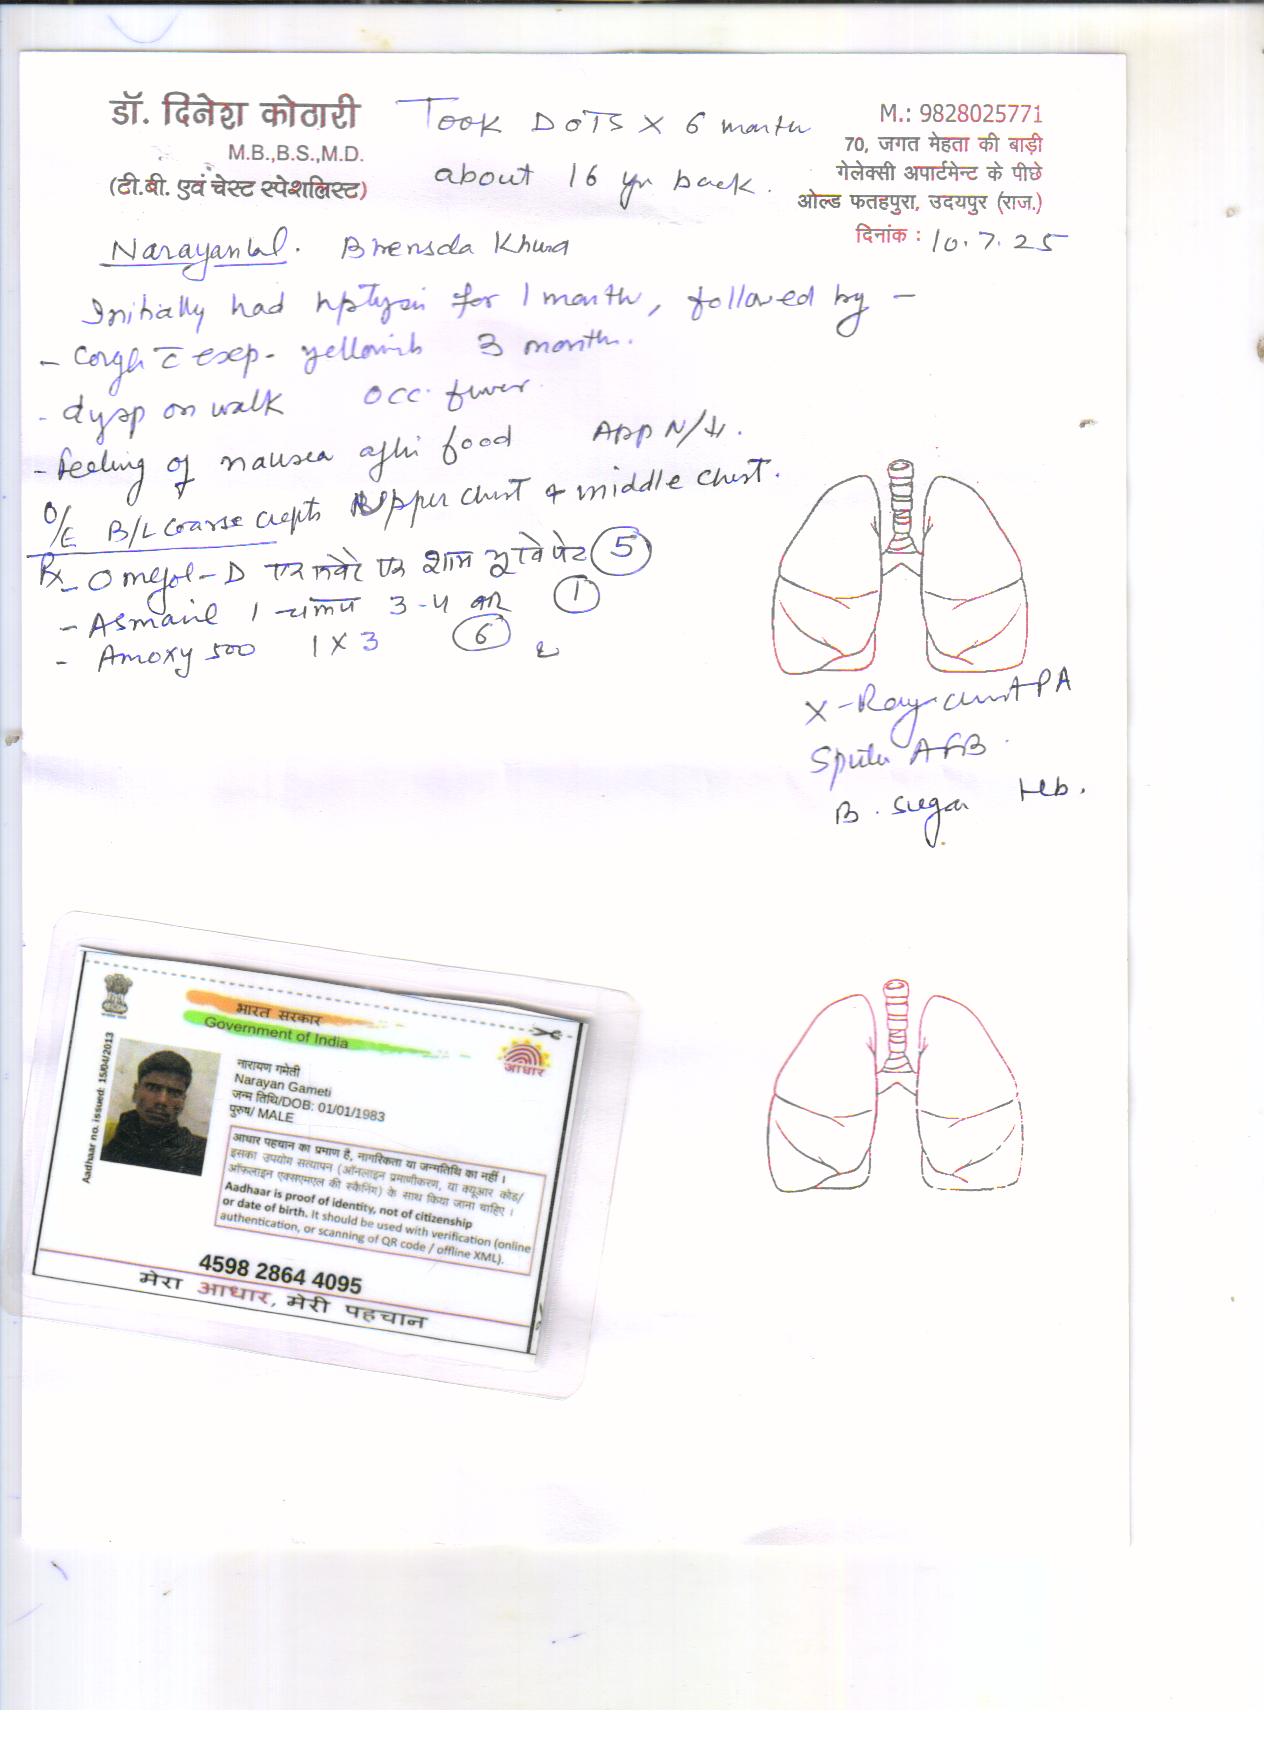 डॉ. दिनेश कोठारी
M.B.,B.S.,M.D.
(टी.बी. एवं चेस्ट स्पेशलिस्ट)
Took DOTS X 6 month
about 16 yr back.
M.: 9828025771
70, जगत मेहता की बाड़ी
गेलेक्सी अपार्टमेन्ट के पीछे
ओल्ड फतहपुरा, उदयपुर (राज.)
दिनांक : 10.7.25
Narayanlal. Bhensda Khurd
Initially had hptysis for 1 month, followed by -
- Cough c̅ exep- yellowish 3 month.
- dysp on walk occ. fever
- feeling of nausea after food App N/
O/E B/L coarse crepts Upper chest & middle chest.
Rx - Omejol-D एक सवेरे एक शाम भूखे पेट (5)
- Asmanil 1 चम्मच 3-4 बार (1)
- Amoxy 500 1 X 3 (6)
X-Ray chest PA
Sputum AFB
B. Sugar Hb.
भारत सरकार
Government of India
Aadhaar no. issued: 15/04/2013
आधार
नारायण गमेती
Narayan Gameti
जन्म तिथि/DOB: 01/01/1983
पुरुष/ MALE
आधार पहचान का प्रमाण है, नागरिकता या जन्मतिथि का नहीं ।
इसका उपयोग सत्यापन (ऑनलाइन प्रमाणीकरण, या क्यूआर कोड/
ऑफ़लाइन एक्सएमएल की स्कैनिंग) के साथ किया जाना चाहिए ।
Aadhaar is proof of identity, not of citizenship
or date of birth. It should be used with verification (online
authentication, or scanning of QR code / offline XML).
4598 2864 4095
मेरा आधार, मेरी पहचान